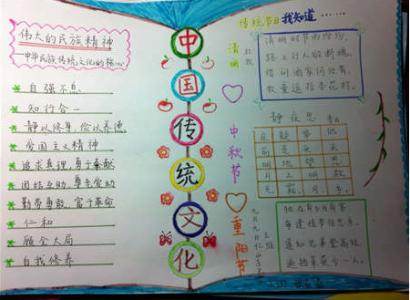 伟大的民族精神
——中华民族传统文化的核心
自强不息
知行合一
静以修身 俭以养德
爱国主义精神
追求真理,勇于奉献
团结互助,尊老爱幼
勤劳勇敢,富于革命
仁和
顾全大局
自我修养
中国传统文化
传统节日我知道……
清明
杜牧
清明时节雨纷纷,
路上行人欲断魂。
借问酒家何处有,
牧童遥指杏花村。
中秋节
静夜思
重阳节
九月九日忆山东
独在异乡为异客
每逢佳节倍思亲
遥知兄弟登高处
遍插茱萸少一人。